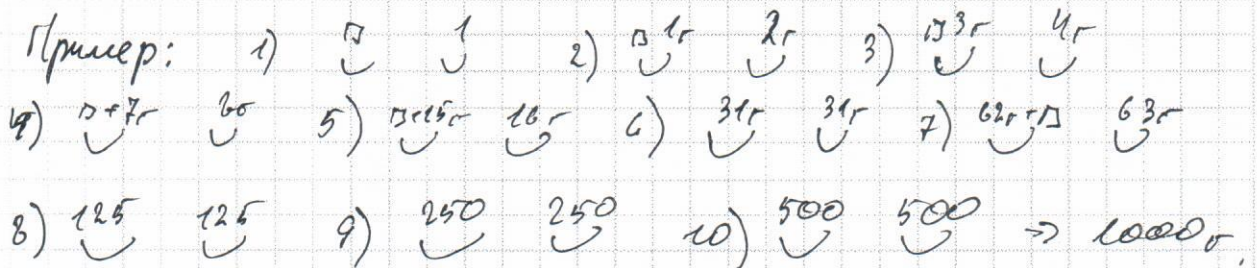 Пример: 1) 1 2) 1г 2г 3) 3г 4г
4) +7г 5) +15г 16г 6) 31г 31г 7) 62г+ 63г
8) 125 125 9) 250 250 10) 500 500 => 1000г.